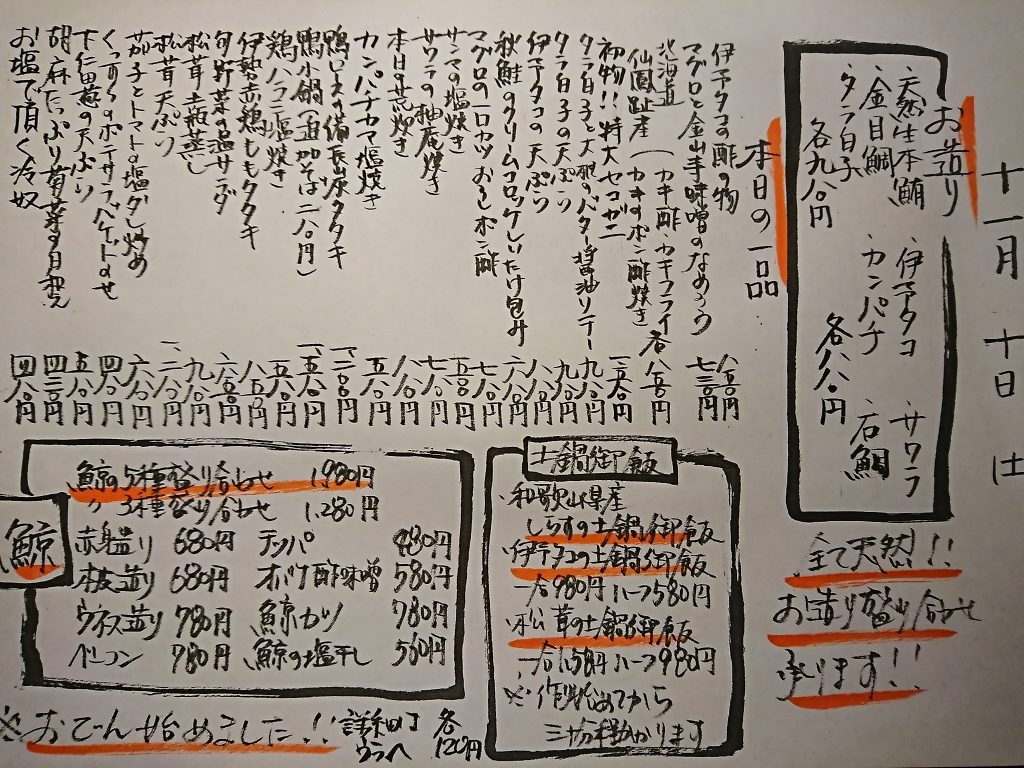 十一月 十日 は
お造り
・天然生本鮪 ・伊予タコ ・サワラ
・金目鯛 ・カンパチ ・石鯛
・タラ白子
各九八〇円 各八八〇円
全て天然!!
お造り盛り合わせ
承ります!!
本日の一品
伊予タコの酢の物 八五〇円
マグロと金山寺味噌のなめろう 七三〇円
北海道
仙鳳趾産(カキ酢・カキフライ
カキのポン酢焼き 各 八五〇円
初物!!特大セコガニ
タラ白子と大根のバター醤油ソテー 九八〇円
タラ白子の天ぷら 九八〇円
伊予タコの天ぷら 八八〇円
秋鮭のクリームコロッケしいたけ包み
マグロの一口カツおろしポン酢 七八〇円
サンマの塩焼き
サワラの柚庵焼き 七八〇円
本日の荒炊き 八八〇円
カンパチカマ塩焼き 五八〇円
鴨ロースの備長炭タタキ
鴨小鍋(追加そば二八〇円)
鶏ハラミ塩焼き
伊勢赤鶏ももタタキ 八五〇円
旬野菜の温サラダ
松茸土瓶蒸し 九八〇円
松茸天ぷら
茄子とトマトの塩ダレ炒め 六八〇円
くっすらのポテサラバゲットのせ 四八〇円
下仁田葱の天ぷら 五八〇円
胡麻たっぷり菊菜の白和え 四三〇円
お塩で頂く冷奴 四八〇円
土鍋御飯
・和歌山県産
しらすの土鍋御飯
・伊予タコの土鍋御飯
一合980円 ハーフ580円
・松茸の土鍋御飯
一合1,580円 ハーフ980円
※作り始めてから
三十分程かかります
鯨
鯨の5種盛り合わせ 1,980円
〃 3種盛り合わせ 1,280円
赤身造り 680円 テッパ 980円
本皮造り 680円 オバケ酢味噌 580円
ウネス造り 780円 鯨カツ 780円
ベーコン 980円 鯨の塩干し 580円
※おでん始めました!! 詳細は ウラへ 各120円